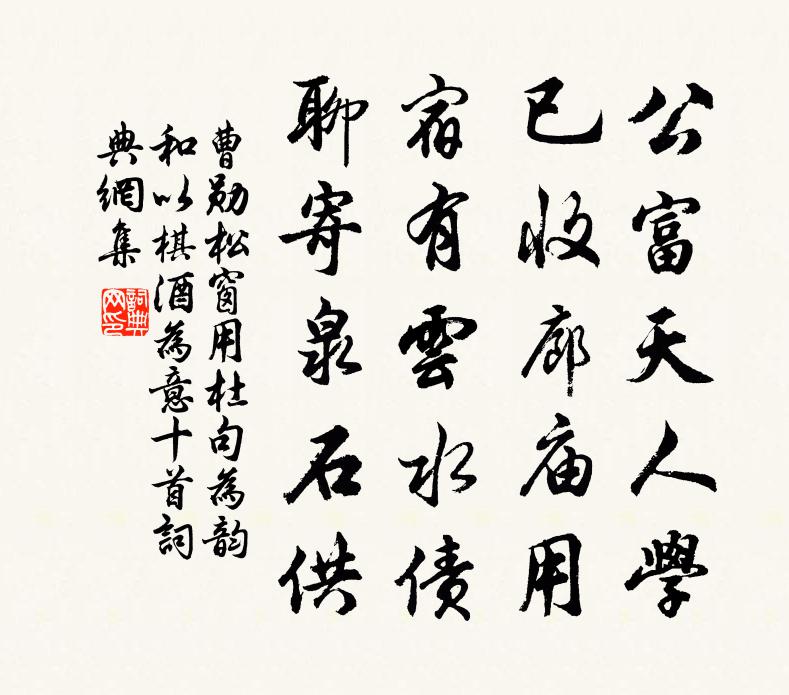 公富天人學
已收廊庙用
宿有雲水债
聊寄泉石供
曹勋松窗用杜句為韵
和以棋酒為意十首詞
典網集
詞典
网印